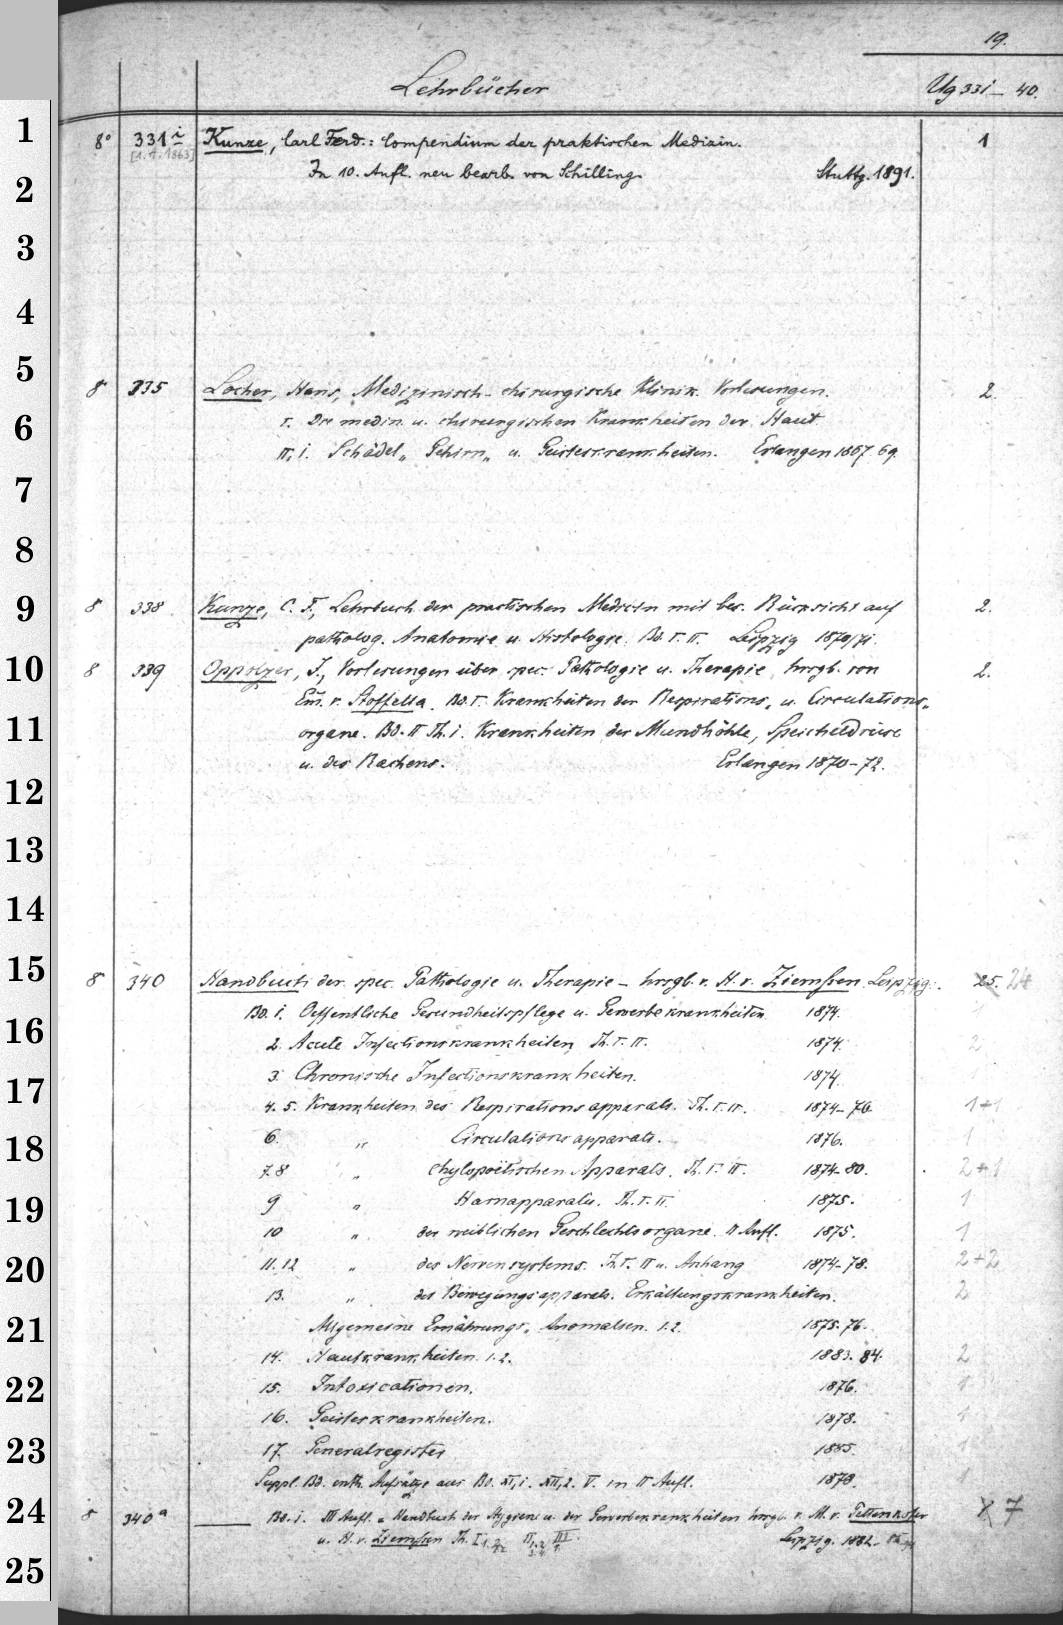 19.
Lehrbücher Ug 331 - 40.
1
8° 331 i Kunze, Carl Ferd.: Compendium der praktischen Medizin. 1
[1. A. 1863]
In 10. Aufl. neu bearb. von Schilling. Stuttg. 1891.
2
3
4
5
8 335 Locher, Hans, Medizinisch-chirurgische Klinik. Vorlesungen. 2.
6
I. Die medizin. u. chirurgischen Krankheiten der Haut
II, 1. Schädel„ Gehirn„ u. Geisteskrankheiten. Erlangen 1867. 69.
7
8
9
8 338 Kunze, C. F., Lehrbuch der practischen Medicin mit bes. Rücksicht auf 2.
patholog. Anatomie u. Histologie. Bd. I. II. Leipzig 1870/71.
10
8 339 Oppolzer, J., Vorlesungen über spec. Pathologie u. Therapie, hrsgb. von 2.
Em. v. Stoffella. Bd. I. Krankheiten der Respirations„ u. Circulations„
11
organe. Bd. II Th. 1. Krankheiten der Mundhöhle, Speicheldrüse
u. des Rachens. Erlangen 1870-72.
12
13
14
15
8 340 Handbuch der spec. Pathologie u. Therapie - hrsgb. v. H. v. Ziemssen. Leipzig. 25. 24
Bd. 1. Oeffentliche Gesundheitspflege u. Gewerbekrankheiten 1874. 1
16
2. Acute Infectionskrankheiten Th. I. II. 1874. 2
3. Chronische Infectionskrankheiten. 1874.
17
4. 5. Krankheiten des Respirationsapparats. Th. I. II. 1874-76. 1+1
18
6. „ Circulationsapparats. 1876. 1
7. 8 „ chylopoëtischen Apparats. Th. I. II. 1874-80. 2+1
19
9 „ Harnapparats. Th. I. II. 1875. 1
10 „ der weiblichen Geschlechtsorgane. II Aufl. 1875. 1
20
11. 12 „ des Nervensystems. Th. I. II u. Anhang 1874-78. 2+2
13. „ des Bewegungsapparats. Erkältungskrankheiten. 2
21
Allgemeine Ernährungs„ Anomalien. 1. 2. 1875. 76.
14. Hautkrankheiten. 1. 2. 1883. 84. 2
22
15. Intoxicationen. 1876. 1
16. Geisteskrankheiten. 1878. 1
23
17. Generalregister 1885. 1
Suppl. Bd. enth. Aufsätze aus Bd. XI, 1. XII, 2. V. in II Aufl. 1878. 1
24
8 340 a ___ Bd. 1. III Aufl. = Handbuch der Hygiene u. der Gewerbekrankheiten hrsgb. v. M. v. Pettenkofer 7
u. H. v. Ziemssen Th. I 1. 2 II 1. 2 III. Leipzig. 1882-
25